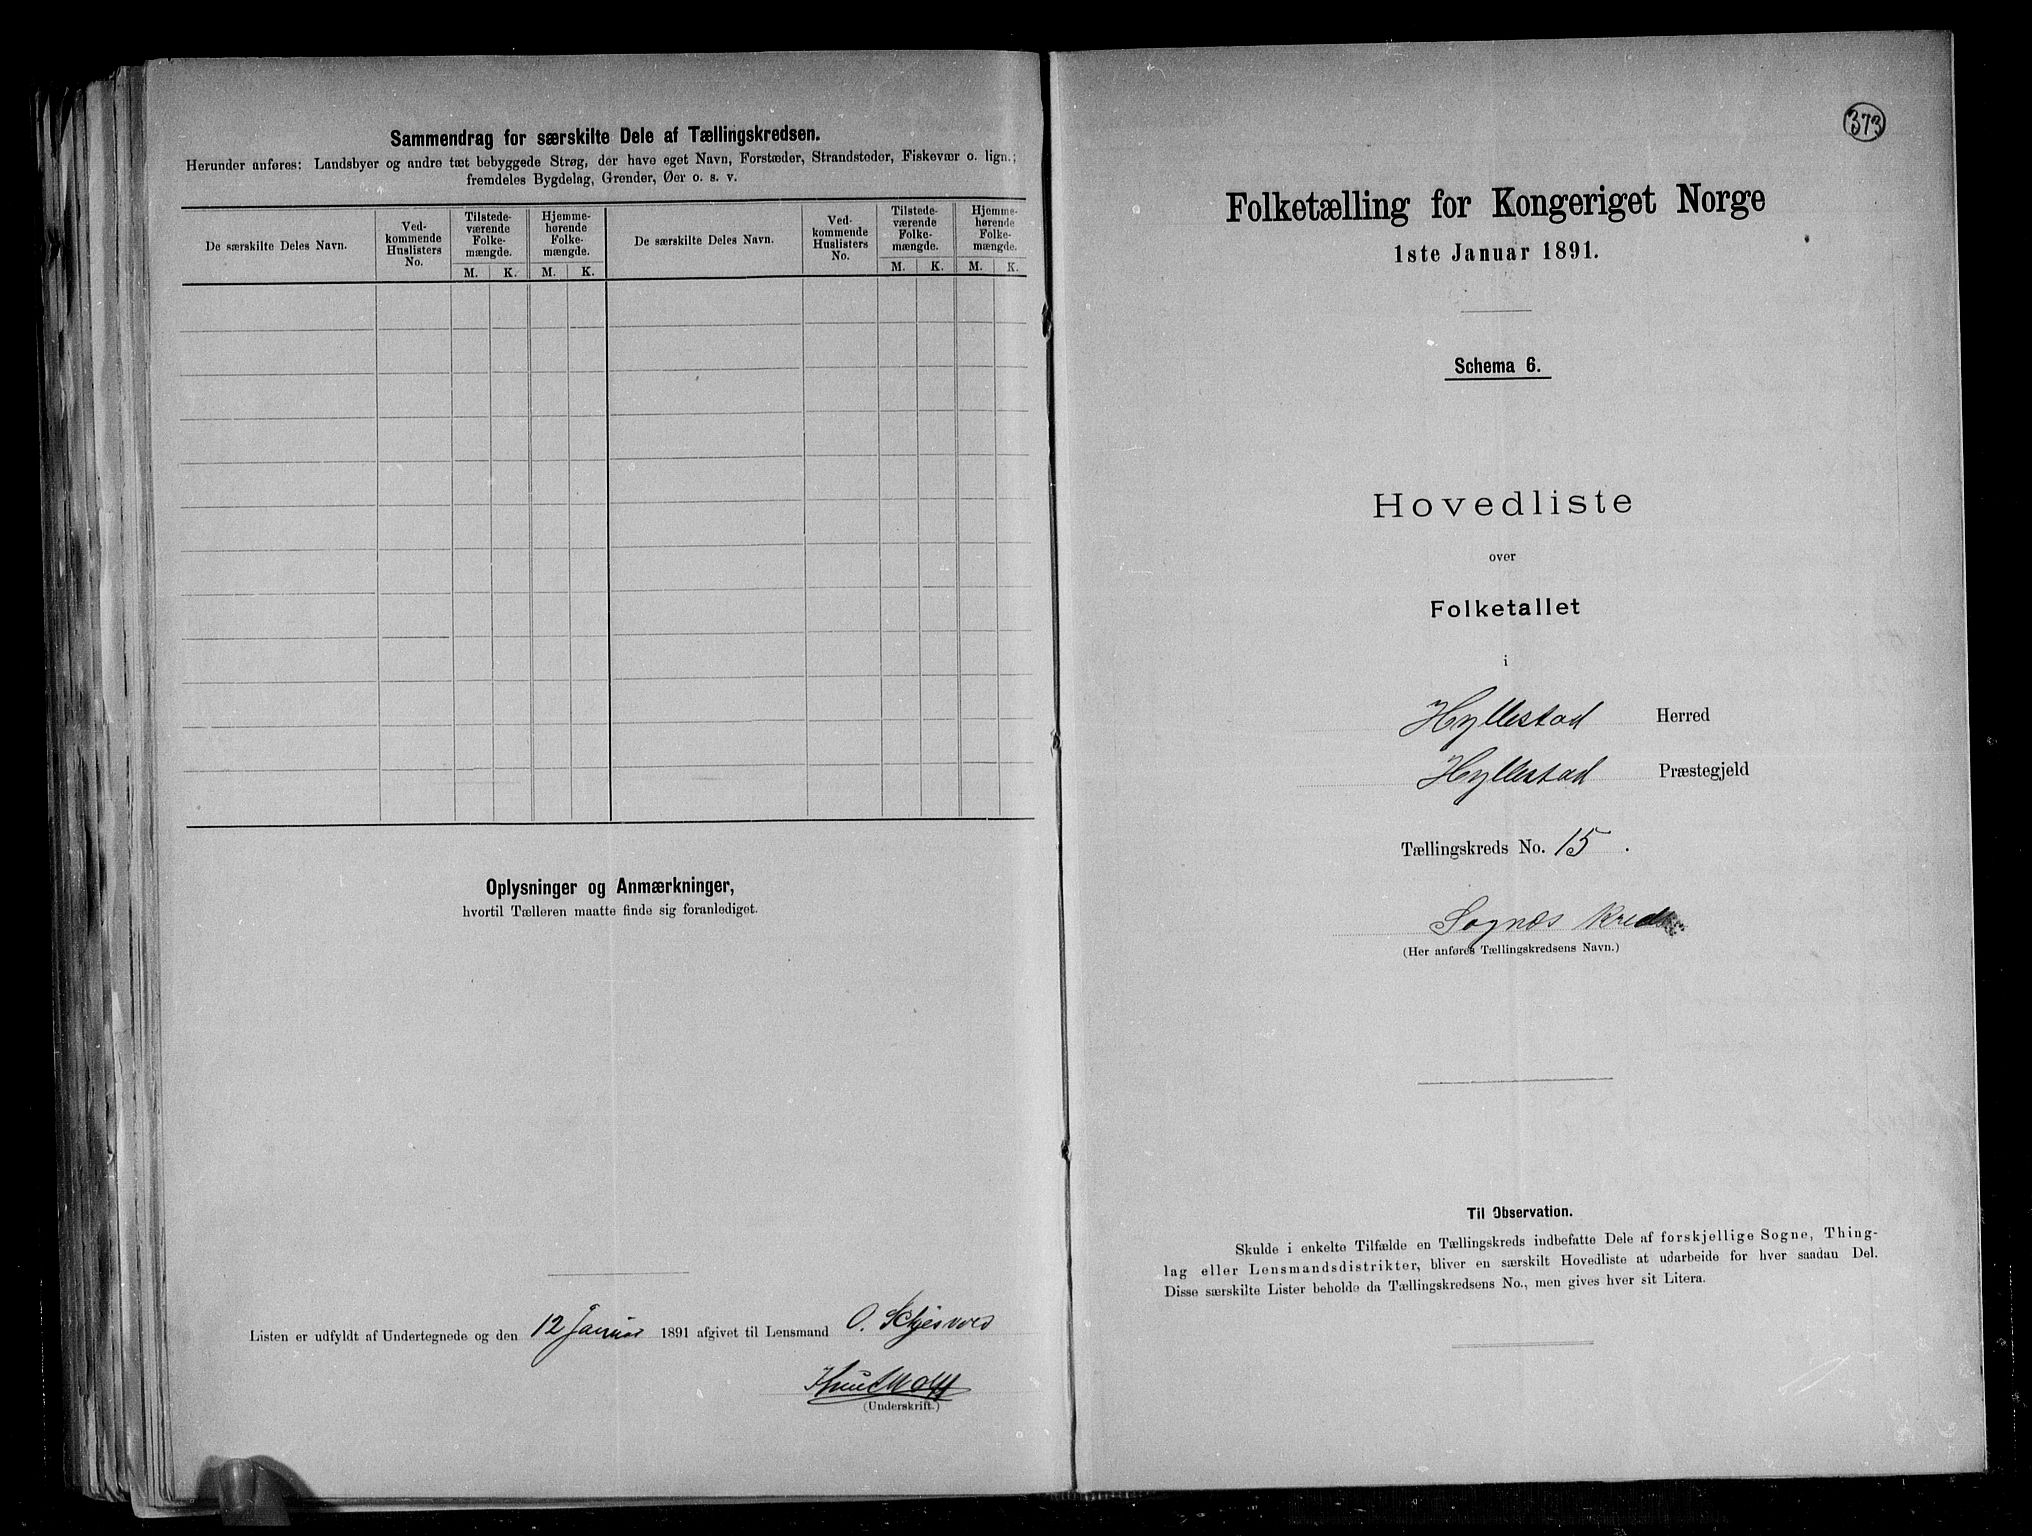 Sammendrag for særskilte Dele af Tællingskredsen.
Herunder anføres: Landsbyer og andre tæt bebyggede Strøg, der have eget Navn, Forstæder, Strandsteder, Fiskevær o. lign.;
fremdeles Bygdelag, Grender, Øer o. s. v.
De særskilte Deles Navn.
Ved-
kommende
Huslisters
No.
Tilstede-
værende
Folke-
mængde.
Hjemme-
hørende
Folke-
mængde.
M. K. M. K.
De særskilte Deles Navn.
Ved-
kommende
Huslisters
No.
Tilstede-
værende
Folke-
mængde.
Hjemme-
hørende
Folke-
mængde.
M. K. M. K.
Oplysninger og Anmærkninger,
hvortil Tælleren maatte finde sig foranlediget.
Listen er udfyldt af Undertegnede og den 12 Januar 1891 afgivet til Lensmand O.
(Underskrift.)
373
Folketælling for Kongeriget Norge
1ste Januar 1891.
Schema 6.
Hovedliste
over
Folketallet
i
Hyllestad Herred
Hyllestad Præstegjeld
Tællingskreds No. 15.
Sognæs Kreds
(Her anføres Tællingskredsens Navn.)
Til Observation.
Skulde i enkelte Tilfælde en Tællingskreds indbefatte Dele af forskjellige Sogne, Thing-
lag eller Lensmandsdistrikter, bliver en særskilt Hovedliste at udarbeide for hver saadan Del.
Disse særskilte Lister beholde da Tællingskredsens No., men gives hver sit Litera.